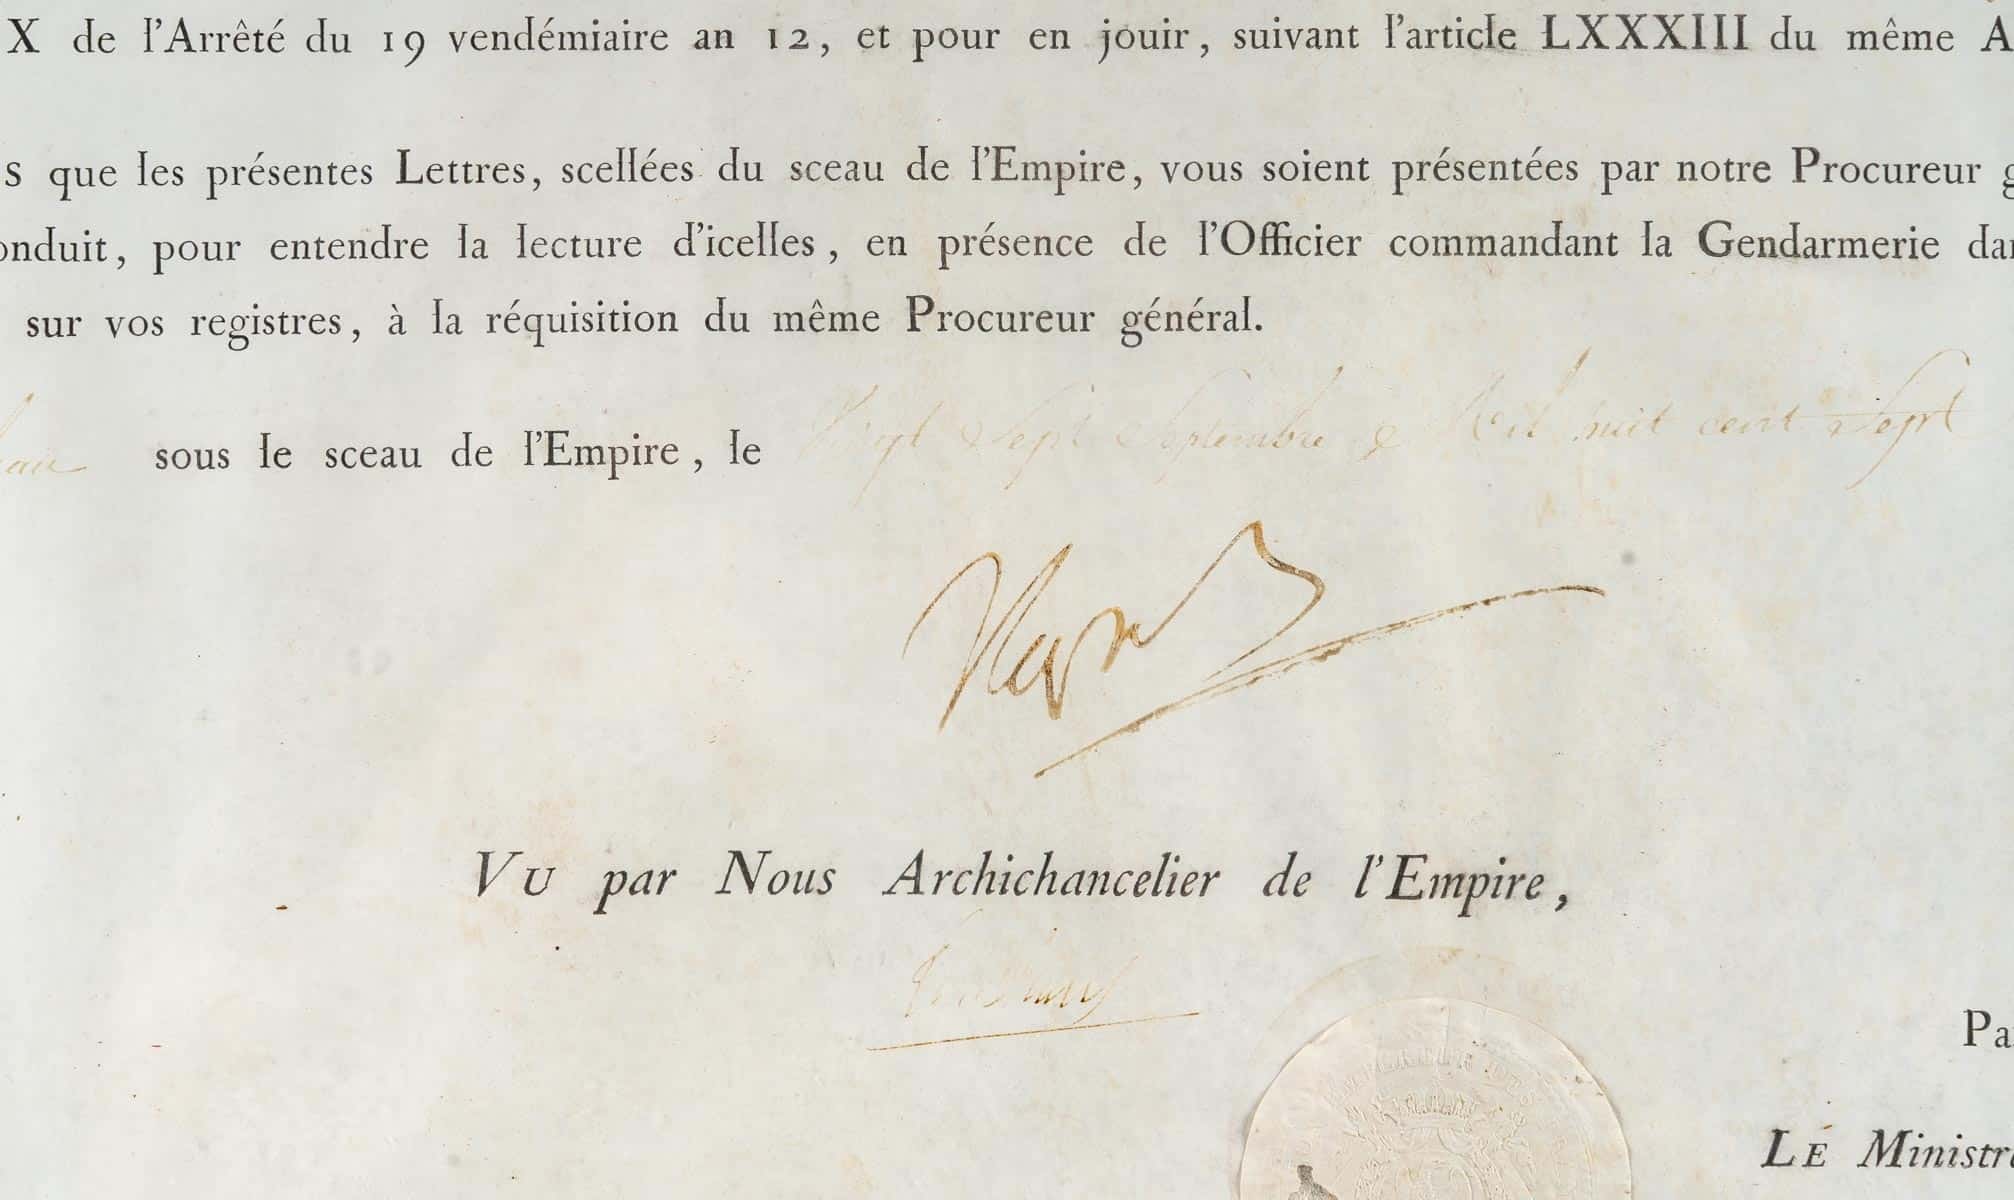 X de l'Arrêté du 19 vendémiaire an 12, et pour en jouir, suivant l'article LXXXIII du même A
s que les présentes Lettres, scellées du sceau de l'Empire, vous soient présentées par notre Procureur g
onduit, pour entendre la lecture d'icelles, en présence de l'Officier commandant la Gendarmerie dan
sur vos registres, à la réquisition du même Procureur général.
eau sous le sceau de l'Empire, le Vingt Sept Septembre Mil huit cent Sept
Nap
VU par Nous Archichancelier de l'Empire,
Pa
LE Ministre